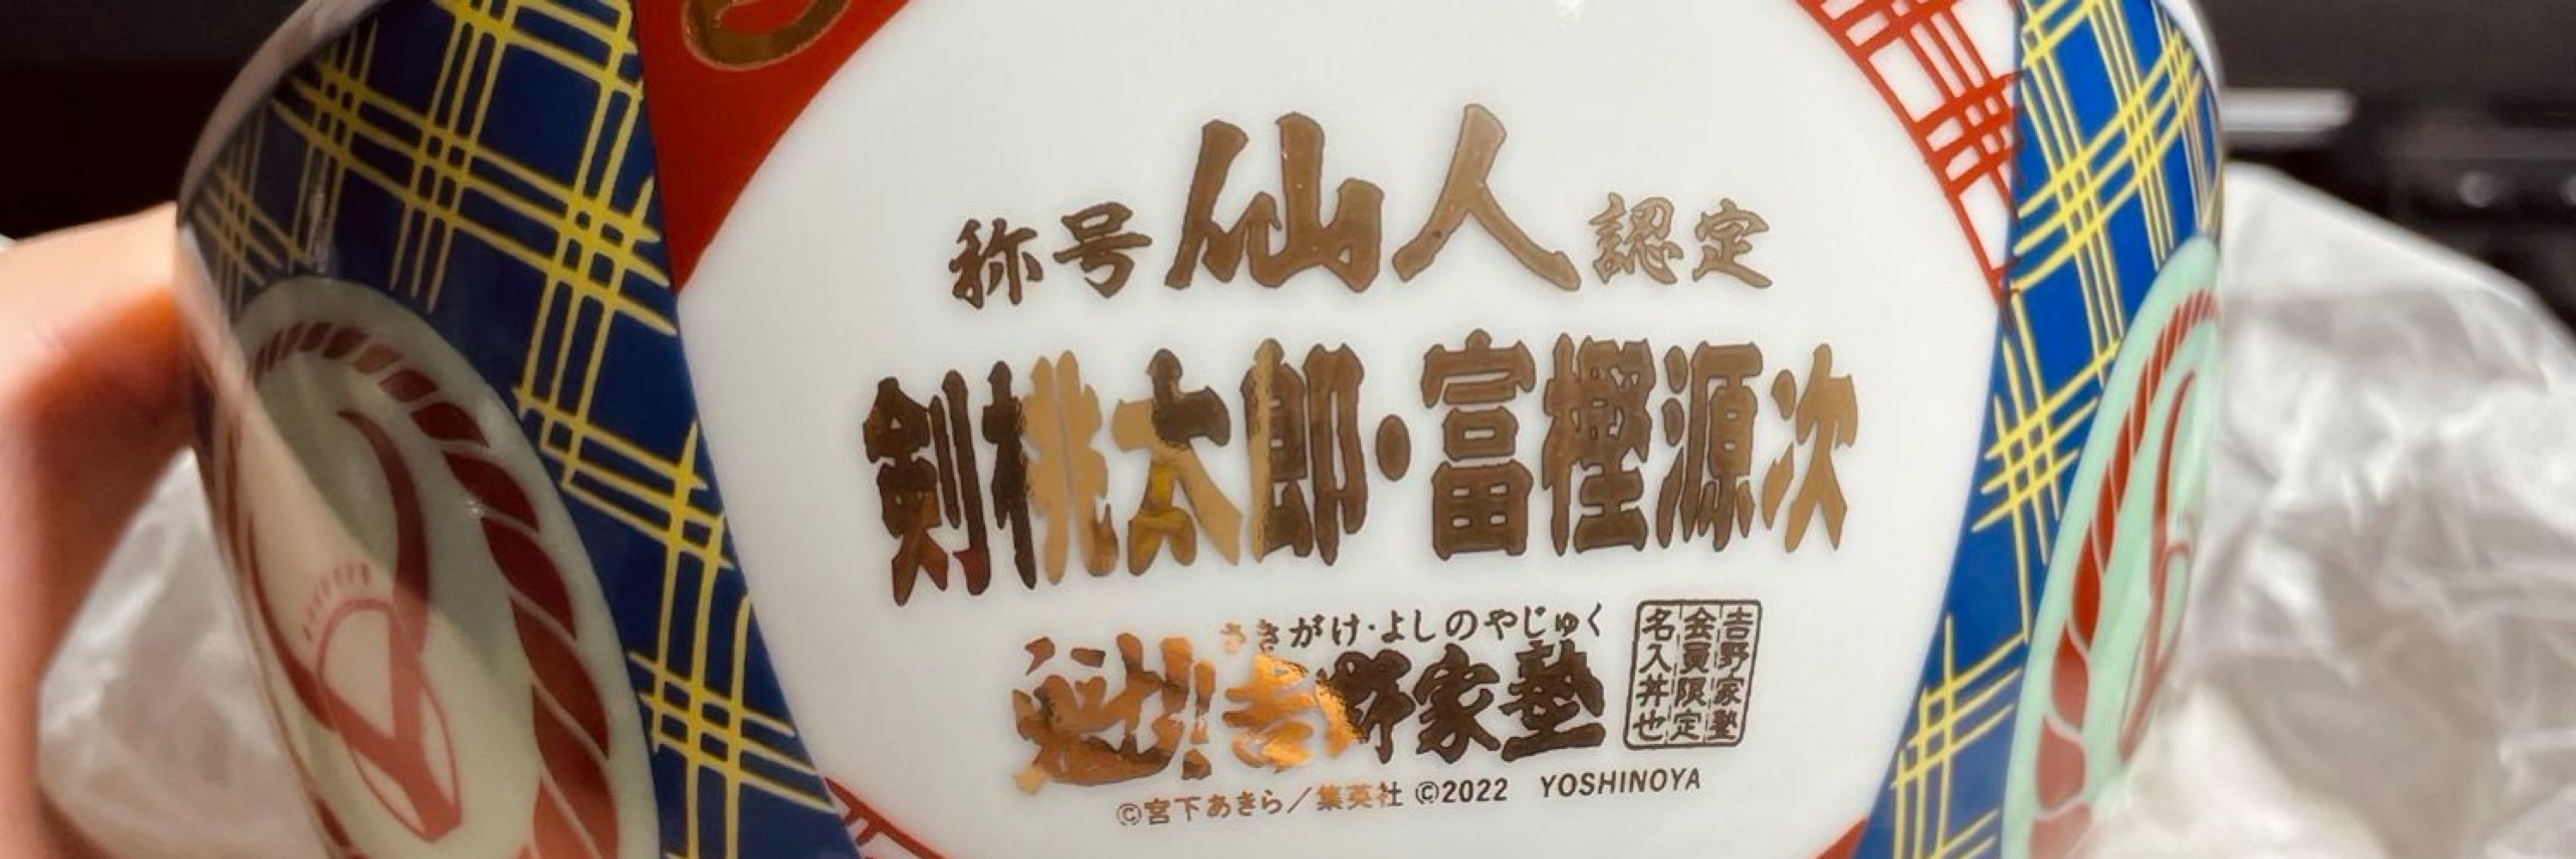 称号仙人認定
剣桃太郎・富樫源次
さきがけ・よしのやじゅく
魁!!吉野家塾
吉野家塾
会員限定
名入丼也
©宮下あきら/集英社 ©2022 YOSHINOYA